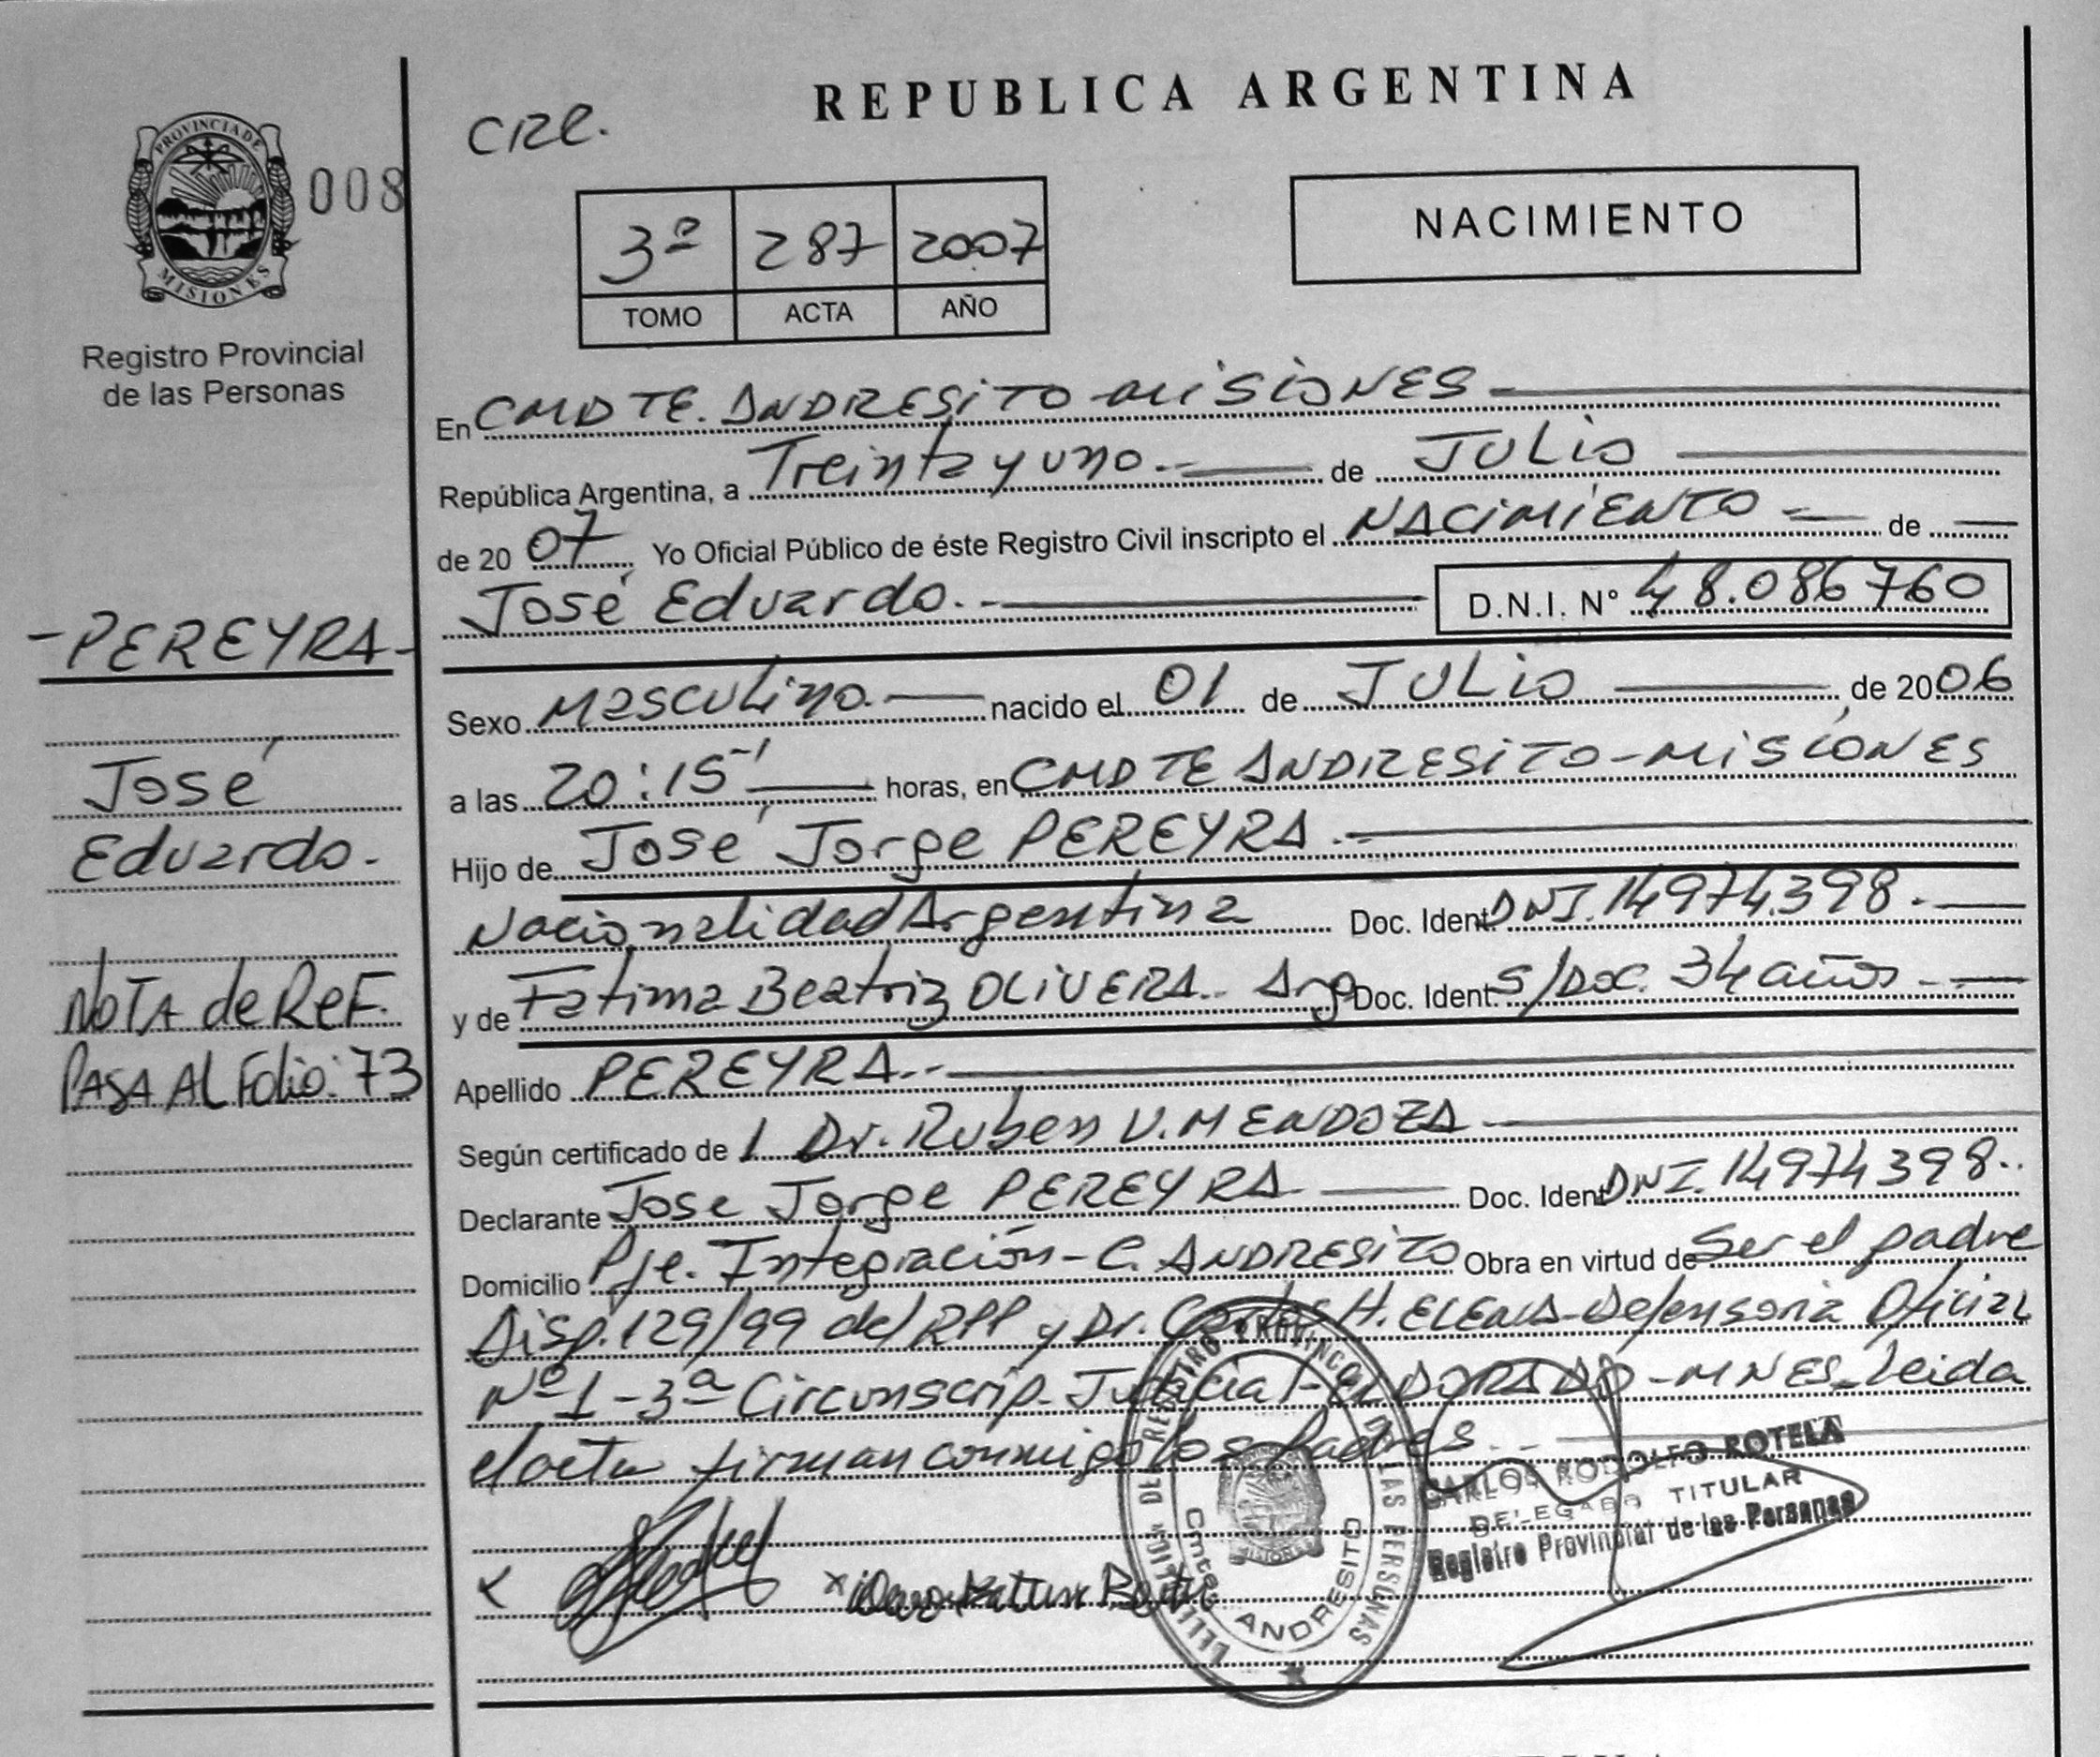 REPUBLICA ARGENTINA
PROVINCIA DE
MISIONES
008
Registro Provincial
de las Personas
3ª 287 2007
TOMO ACTA AÑO
NACIMIENTO
En CMDTE. ANDRESITO-MISIONES
República Argentina, a Treinta y uno.- de JULIO
de 20 07 Yo Oficial Público de éste Registro Civil inscripto el NACIMIENTO - de
José Eduardo.- D.N.I. N° 48.086760
-PEREYRA-
José
Eduardo.-
NOTA de REF.
PASA AL Folio: 73
Sexo Masculino.- nacido el 01 de JULIO de 2006
a las 20:15 horas, en CMDTE ANDRESITO-MISIONES
Hijo de José Jorge PEREYRA.-
Nacionalidad Argentina Doc. Ident DNI. 14974.398.-
y de Fatima Beatriz OLIVERA.. Arg Doc. Ident. S/Doc. 34 años.-
Apellido PEREYRA..-
Según certificado de 1 Dr. Ruben V. MENDOZA
Declarante Jose Jorge PEREYRA Doc. Ident DNI. 14974398..
Domicilio Pje. Integración-C. ANDRESITO Obra en virtud de Ser el padre
Disp. 129/99 del RPP y Dr. Carlos H. ELENA-Defensoria Oficial
Nº 1-3ª Circunscrip. Judicial-ELDORADO-MNES_Leida
el acta firman conmigo los Padres..
CARLOS RODOLFO ROTELA
DELEGADO TITULAR
Registro Provincial de las Personas
REGISTRO PROVINCIAL DE LAS PERSONAS
Cmte. ANDRESITO